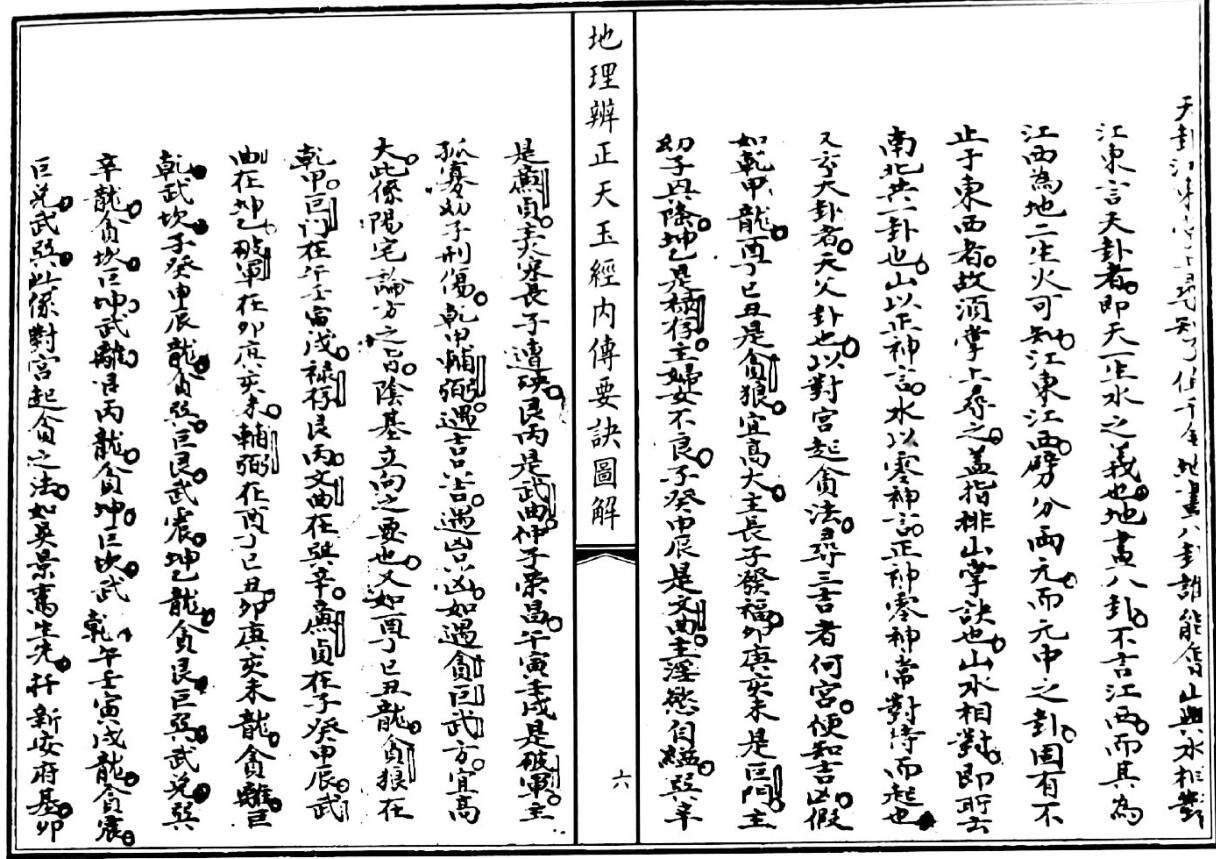 天卦江東掌上尋知了值千金地畫八卦誰能會山與水相對
江東言天卦者即天一生水之義也地畫八卦不言江西而其為
江西為地二生火可知江東江西劈分兩元而元中之卦固有不
止于東西者故須掌上尋之蓋指排山掌訣也山水相對即所云
南北共一卦也山以正神言水以零神言正神零神常對待而起也
又云天卦者天父卦也以對宮起貪法尋三吉者何宮便知吉凶假
如乾甲龍酉丁巳丑是貪狼宜高大主長子發福卯庚亥未是巨門主
幼子興隆坤乙是祿存主婦女不良子癸申辰是文曲主淫慾自縊巽辛
地理辨正天玉經內傳要訣圖解
六
是廉貞夭寒長子遭殃艮丙是武曲仲子榮昌午寅壬戌是破軍主
孤寡幼子刑傷乾甲輔弼遇吉吉遇凶凶如遇貪巨武方宜高
大此係陽宅論方之旨陰基立向之要也又如酉丁巳丑龍貪狼在
乾甲巨門在午壬寅戌祿存艮丙文曲在巽辛廉貞在子癸申辰武
曲在坤乙破軍在卯庚亥未輔弼在酉丁巳丑卯庚亥未龍貪離巨
乾武坎子癸申辰龍貪巽巨艮武震坤乙龍貪艮巨巽武兌巽
辛龍貪坎巨坤武離艮丙龍貪坤巨坎武乾午壬寅戌龍貪震
巨兌武巽此係對宮起貪之法如吳景鸞先扦新安府基卯